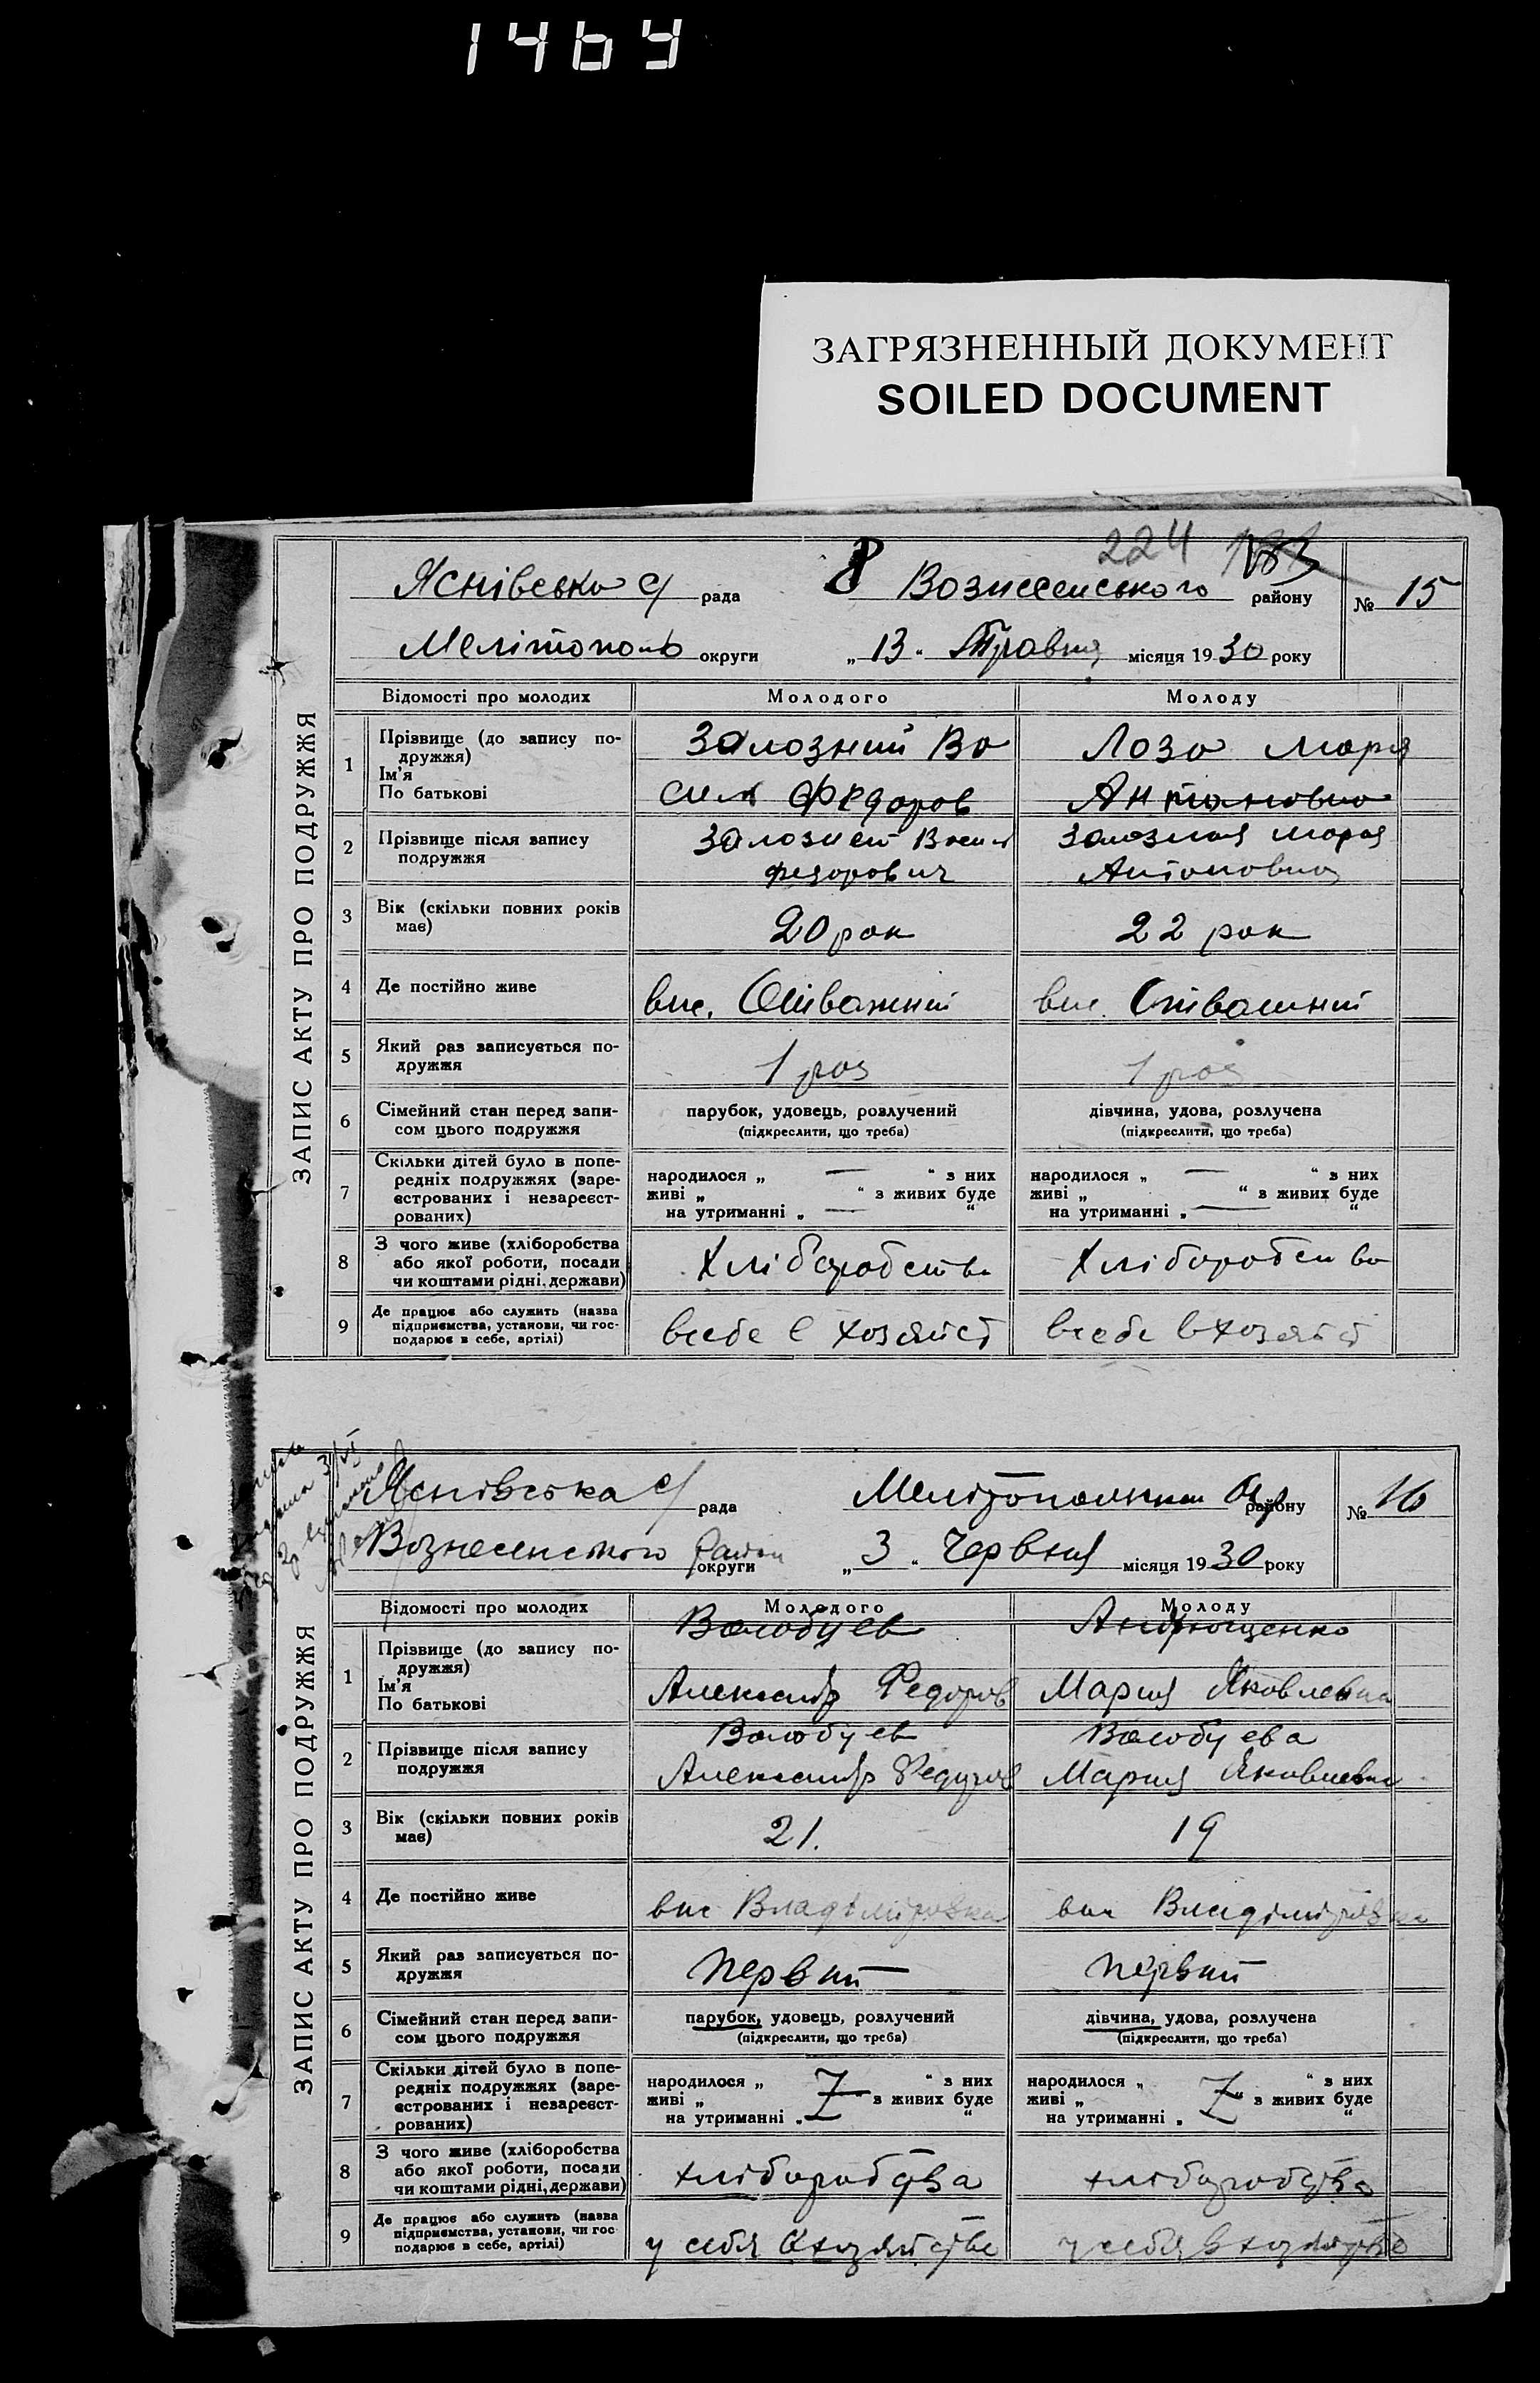 1464
ЗАГРЯЗНЕННЫЙ ДОКУМЕНТ
SOILED DOCUMENT
224 183
ЗАПИС АКТУ ПРО ПОДРУЖЖЯ
Яснівська с/ рада 8 Вознесенського району № 15
Мелітополь округи „13“ Травня місяця 1930 року
Відомості про молодих Молодого Молоду
1 Прізвище (до запису по-
дружжя)
Ім'я
По батькові
Залозний Ва
силь Федоров
Лоза Марія
Антоновна
2 Прізвище після запису
подружжя
Залозней Васил
Федорович
Залозная Мария
Антоновна
3 Вік (скільки повних років
має)
20 рок 22 рок
4 Де постійно живе
вис. вис.
5 Який раз записується по-
дружжя
1 раз 1 раз
6 Сімейний стан перед запи-
сом цього подружжя
парубок, удовець, розлучений
(підкреслити, що треба)
дівчина, удова, розлучена
(підкреслити, що треба)
7 Скільки дітей було в попе-
редніх подружжях (заре-
єстрованих і незареєст-
рованих)
народилося „ — “ з них
живі „ “ з живих буде
на утриманні „ — “
народилося „ — “ з них
живі „ “ з живих буде
на утриманні „ — “
8 З чого живе (хліборобства
або якої роботи, посади
чи коштами рідні, держави)
Хліборобства Хліборобства
9 Де працює або служить (назва
підприємства, установи, чи гос-
подарює в себе, артілі)
всебе в хозяйст всебе в хозяйст
ЗАПИС АКТУ ПРО ПОДРУЖЖЯ
Яснівська с/ рада району № 16
Вознесенського район округи „3“ Червня місяця 1930 року
Відомості про молодих Молодого Молоду
1 Прізвище (до запису по-
дружжя)
Ім'я
По батькові
Волобуев
Александр Федоров
Андрющенко
Мария Яковлевна
2 Прізвище після запису
подружжя
Волобуев
Александр Федоров
Волобуева
Мария Яковлевна
3 Вік (скільки повних років
має)
21. 19
4 Де постійно живе
вис Владіміровка вис Владіміровка
5 Який раз записується по-
дружжя
первий первий
6 Сімейний стан перед запи-
сом цього подружжя
парубок, удовець, розлучений
(підкреслити, що треба)
дівчина, удова, розлучена
(підкреслити, що треба)
7 Скільки дітей було в попе-
редніх подружжях (заре-
єстрованих і незареєст-
рованих)
народилося „ “ з них
живі „ “ з живих буде
на утриманні „ “
народилося „ “ з них
живі „ “ з живих буде
на утриманні „ “
8 З чого живе (хліборобства
або якої роботи, посади
чи коштами рідні, держави)
хліборобства хліборобства
9 Де працює або служить (назва
підприємства, установи, чи гос-
подарює в себе, артілі)
у себя в хозяйстве у себя в хозяйстве